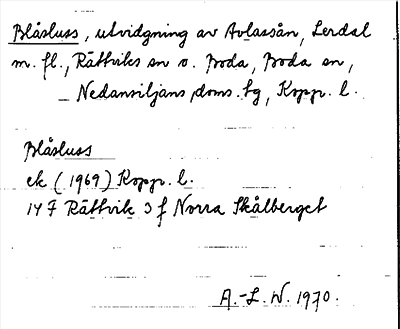 Blåsluss, utvidgning av Avlassån, Lerdal
m. fl., Rättviks sn o. Boda, Boda sn,
Nedansiljans doms. tg, Kopp. l.
Blåsluss
ek (1969) Kopp. l.
14 F Rättvik 3 f Norra Skålberget
A.-L. W. 1970.